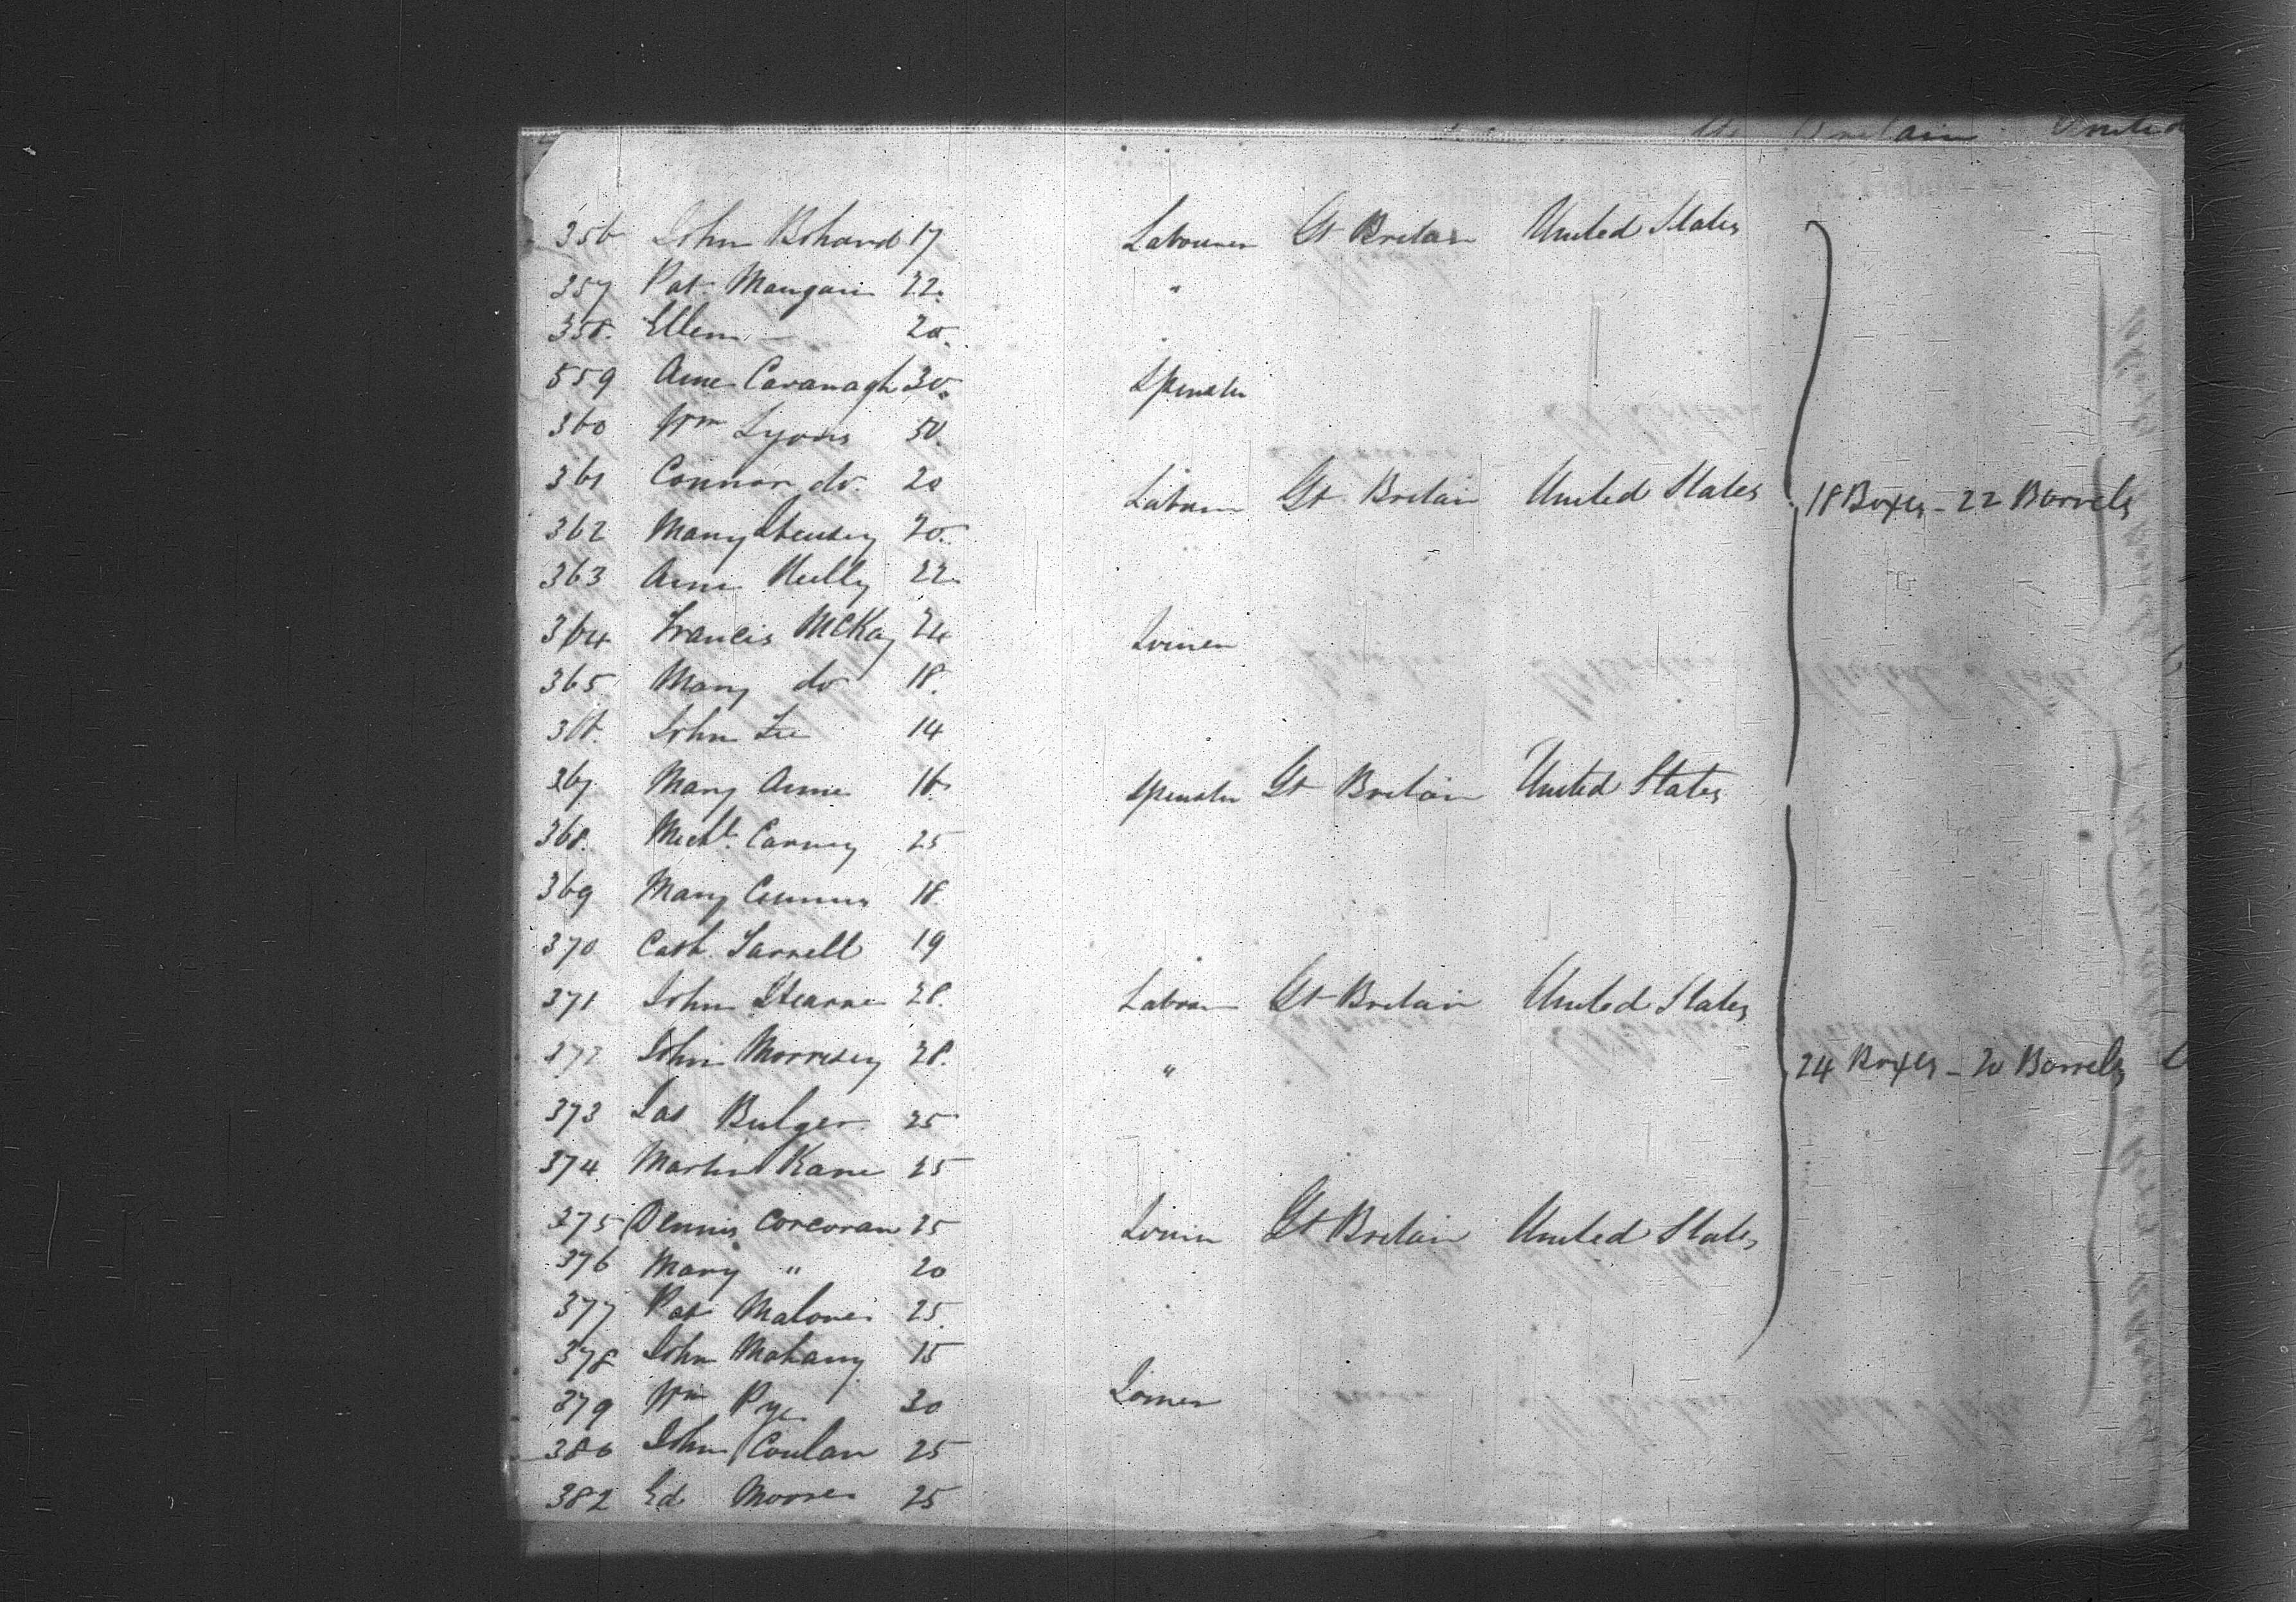 Gt Britain United
356 John Bohand 17 Labourer Gt Britain United States
357 Pat Mangan 22 "
358. Ellen — 20.
559 Anne Cavanagh 30. Spinster
360 Wm Lyons 50.
361 Connor do. 20 Labourer Gt Britain United States 18 Boxes - 22 Barrels
362 Mary 20.
363 Anne Kelly 22
364 Francis McKay 24 Joiner
365 Mary do 18.
366. John Lee 14
367 Mary Anne 16 Spinster Gt Britain United States
368. Michl. Carney 25
369 Mary 18.
370 Cath. Farrell 19
371 John Hearne 28. Labourer Gt Britain United States
372 John Morrisey 28. " 24 Boxes - 20 Barrels
373 Jas Bulger 25
374. Martin Kane 25
375 Dennis Corcoran 25 Joiner Gt Britain United States
376 Mary " 20
377 Pat Malone 25.
378 John Mahany 15
379 Wm Pye 30 Joiner
380 John Conlan 25
382 Ed Moore 25